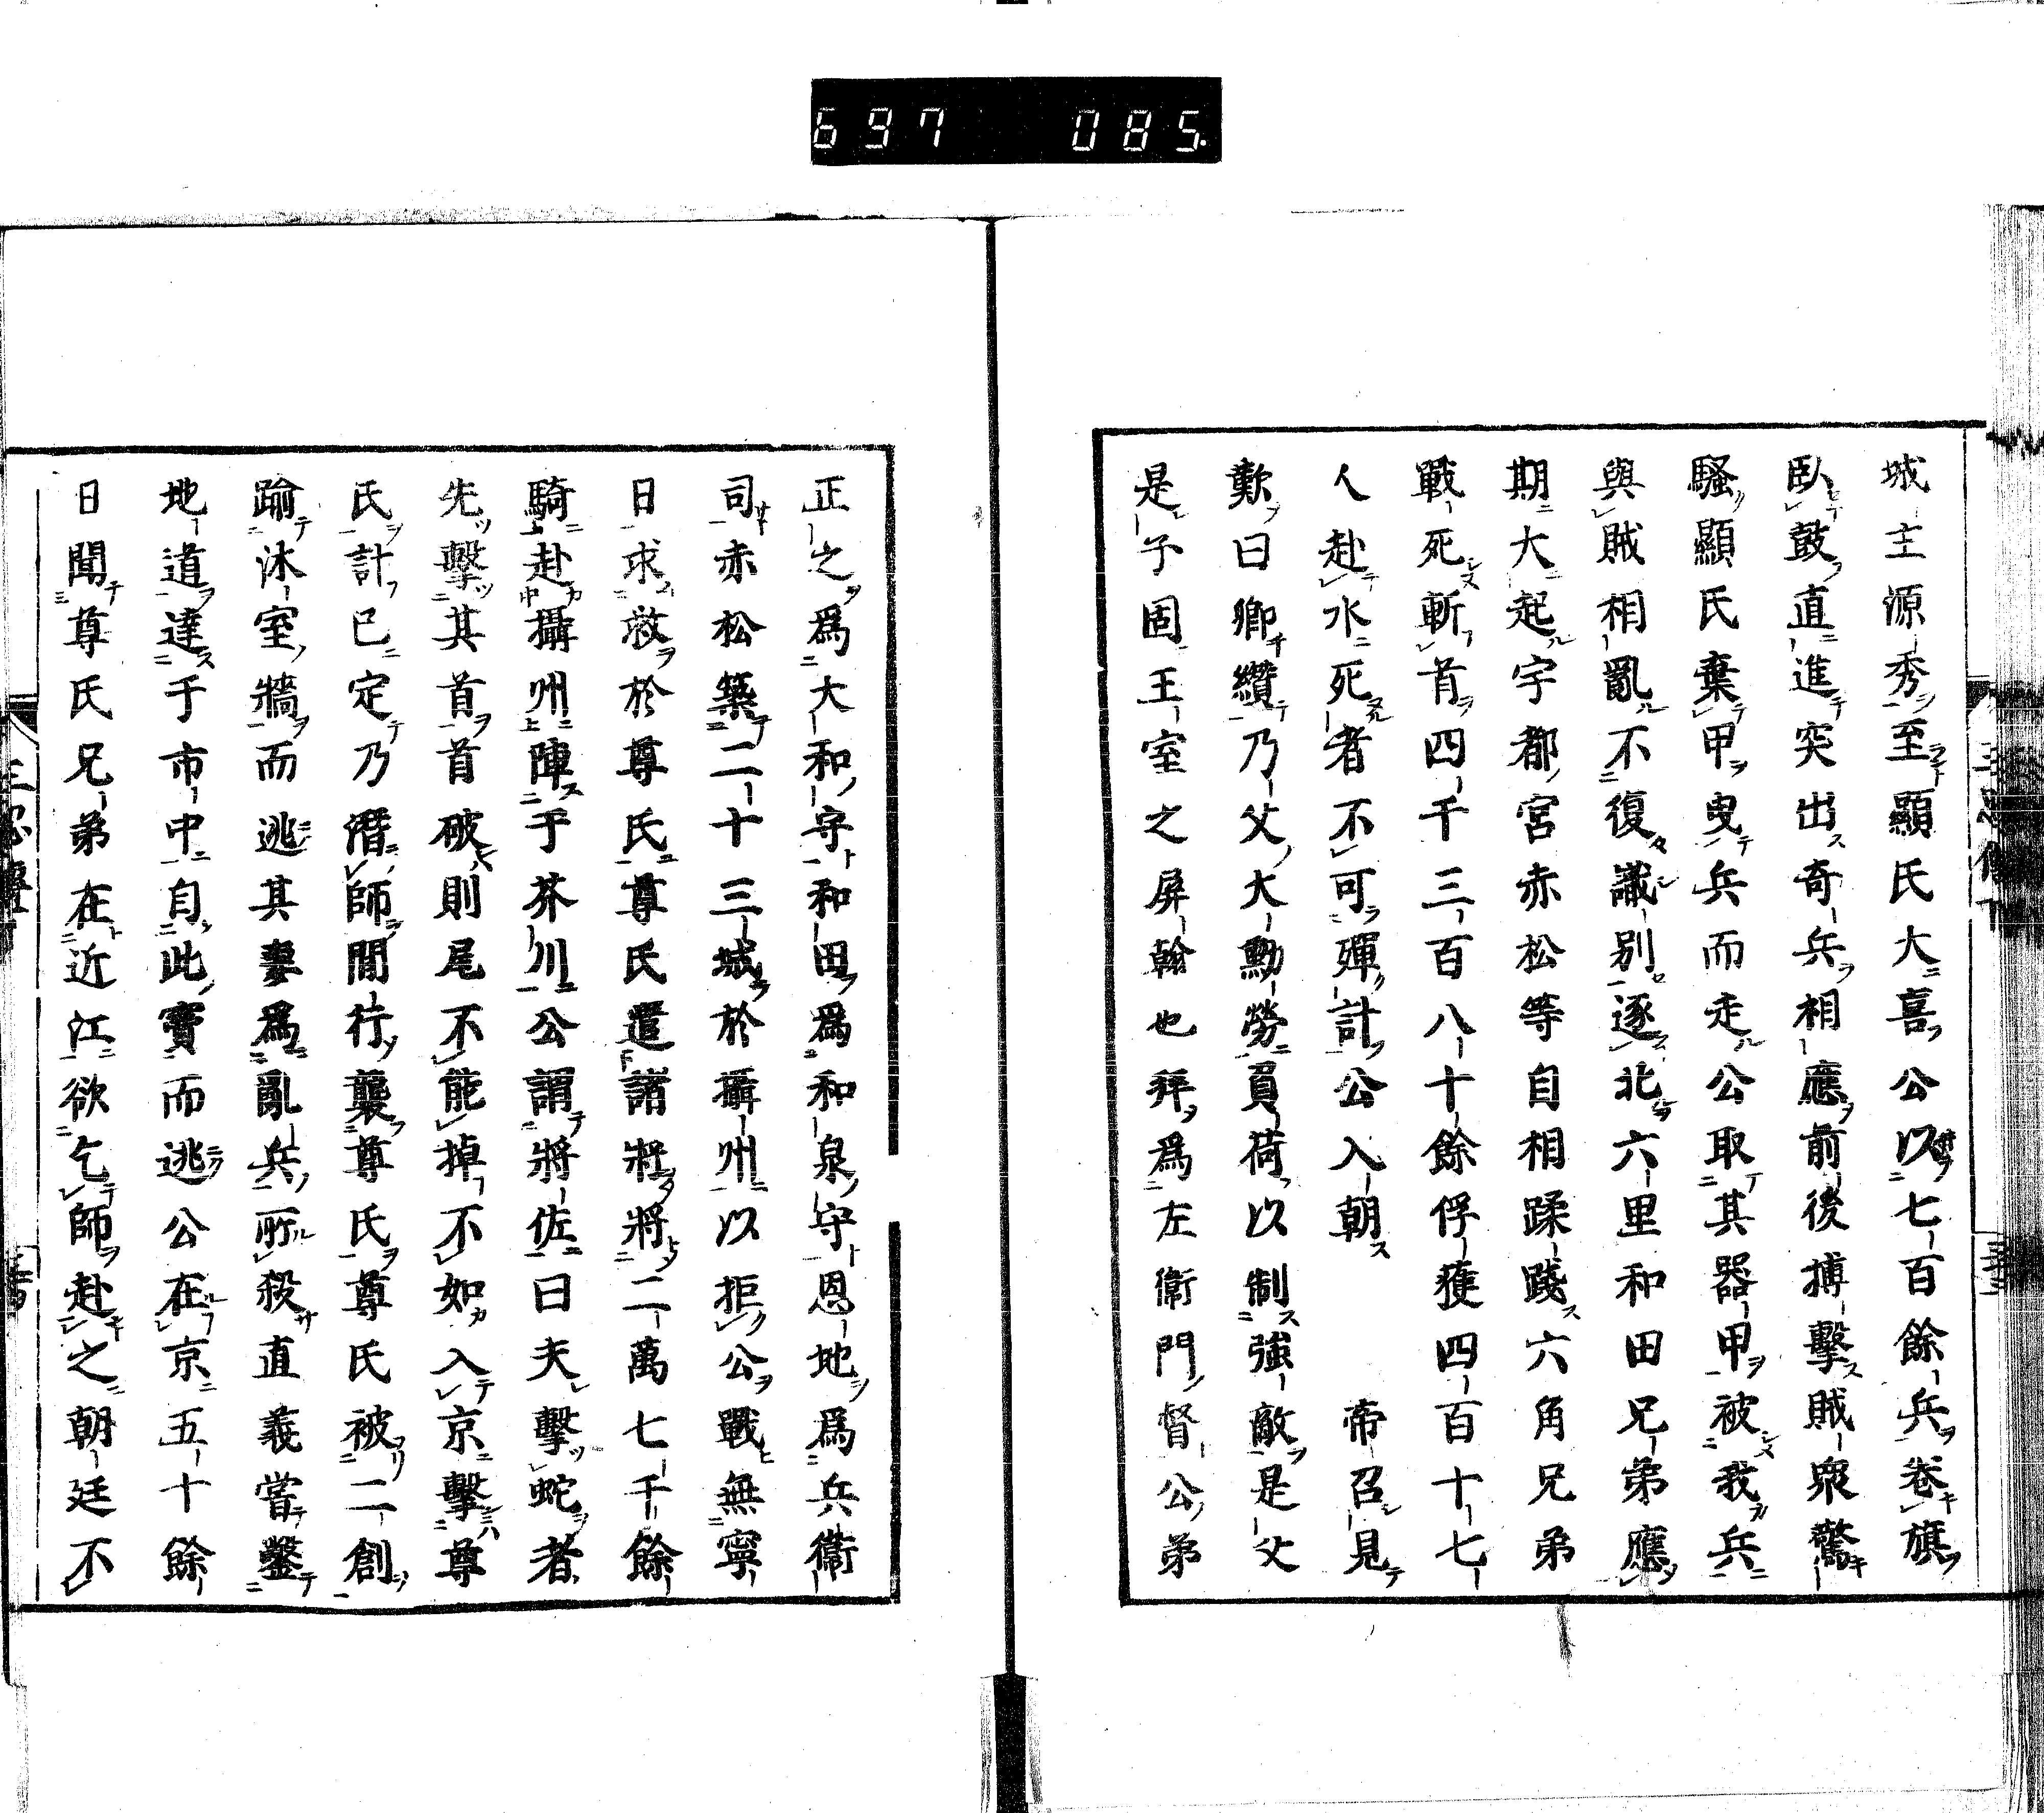 697 085
城主源秀至顯氏大喜公以七百餘兵卷旗
臥鼓直進突出奇兵相應前後搏擊賊衆驚
騷顯氏棄甲曳兵而走公取其器甲被我兵
與賊相亂不復識別逐北六里和田兄弟應
期大起宇都宮赤松等自相蹂踐六角兄弟
戰死斬首四千三百八十餘俘獲四百十七
人赴水死者不可殫計公入朝 帝召見
歎曰卿纘乃父大勳勞負荷以制強敵是父
是子固王室之屏翰也拜爲左衞門督公弟
正之爲大和守和田爲和泉守恩地爲兵衞
司赤松築二十三城於攝州以拒公戰無寧
日求救於尊氏尊氏遣諸將將二萬七千餘
騎赴攝州陣于芥川公謂將佐曰夫擊蛇者
先擊其首首破則尾不能掉不如入京擊尊
氏計已定乃潛師間行襲尊氏尊氏被二創
踰沐室牆而逃其妻爲亂兵所殺直義嘗鑿
地道達于市中自此竇而逃公在京五十餘
日聞尊氏兄弟在近江欲乞師赴之朝廷不